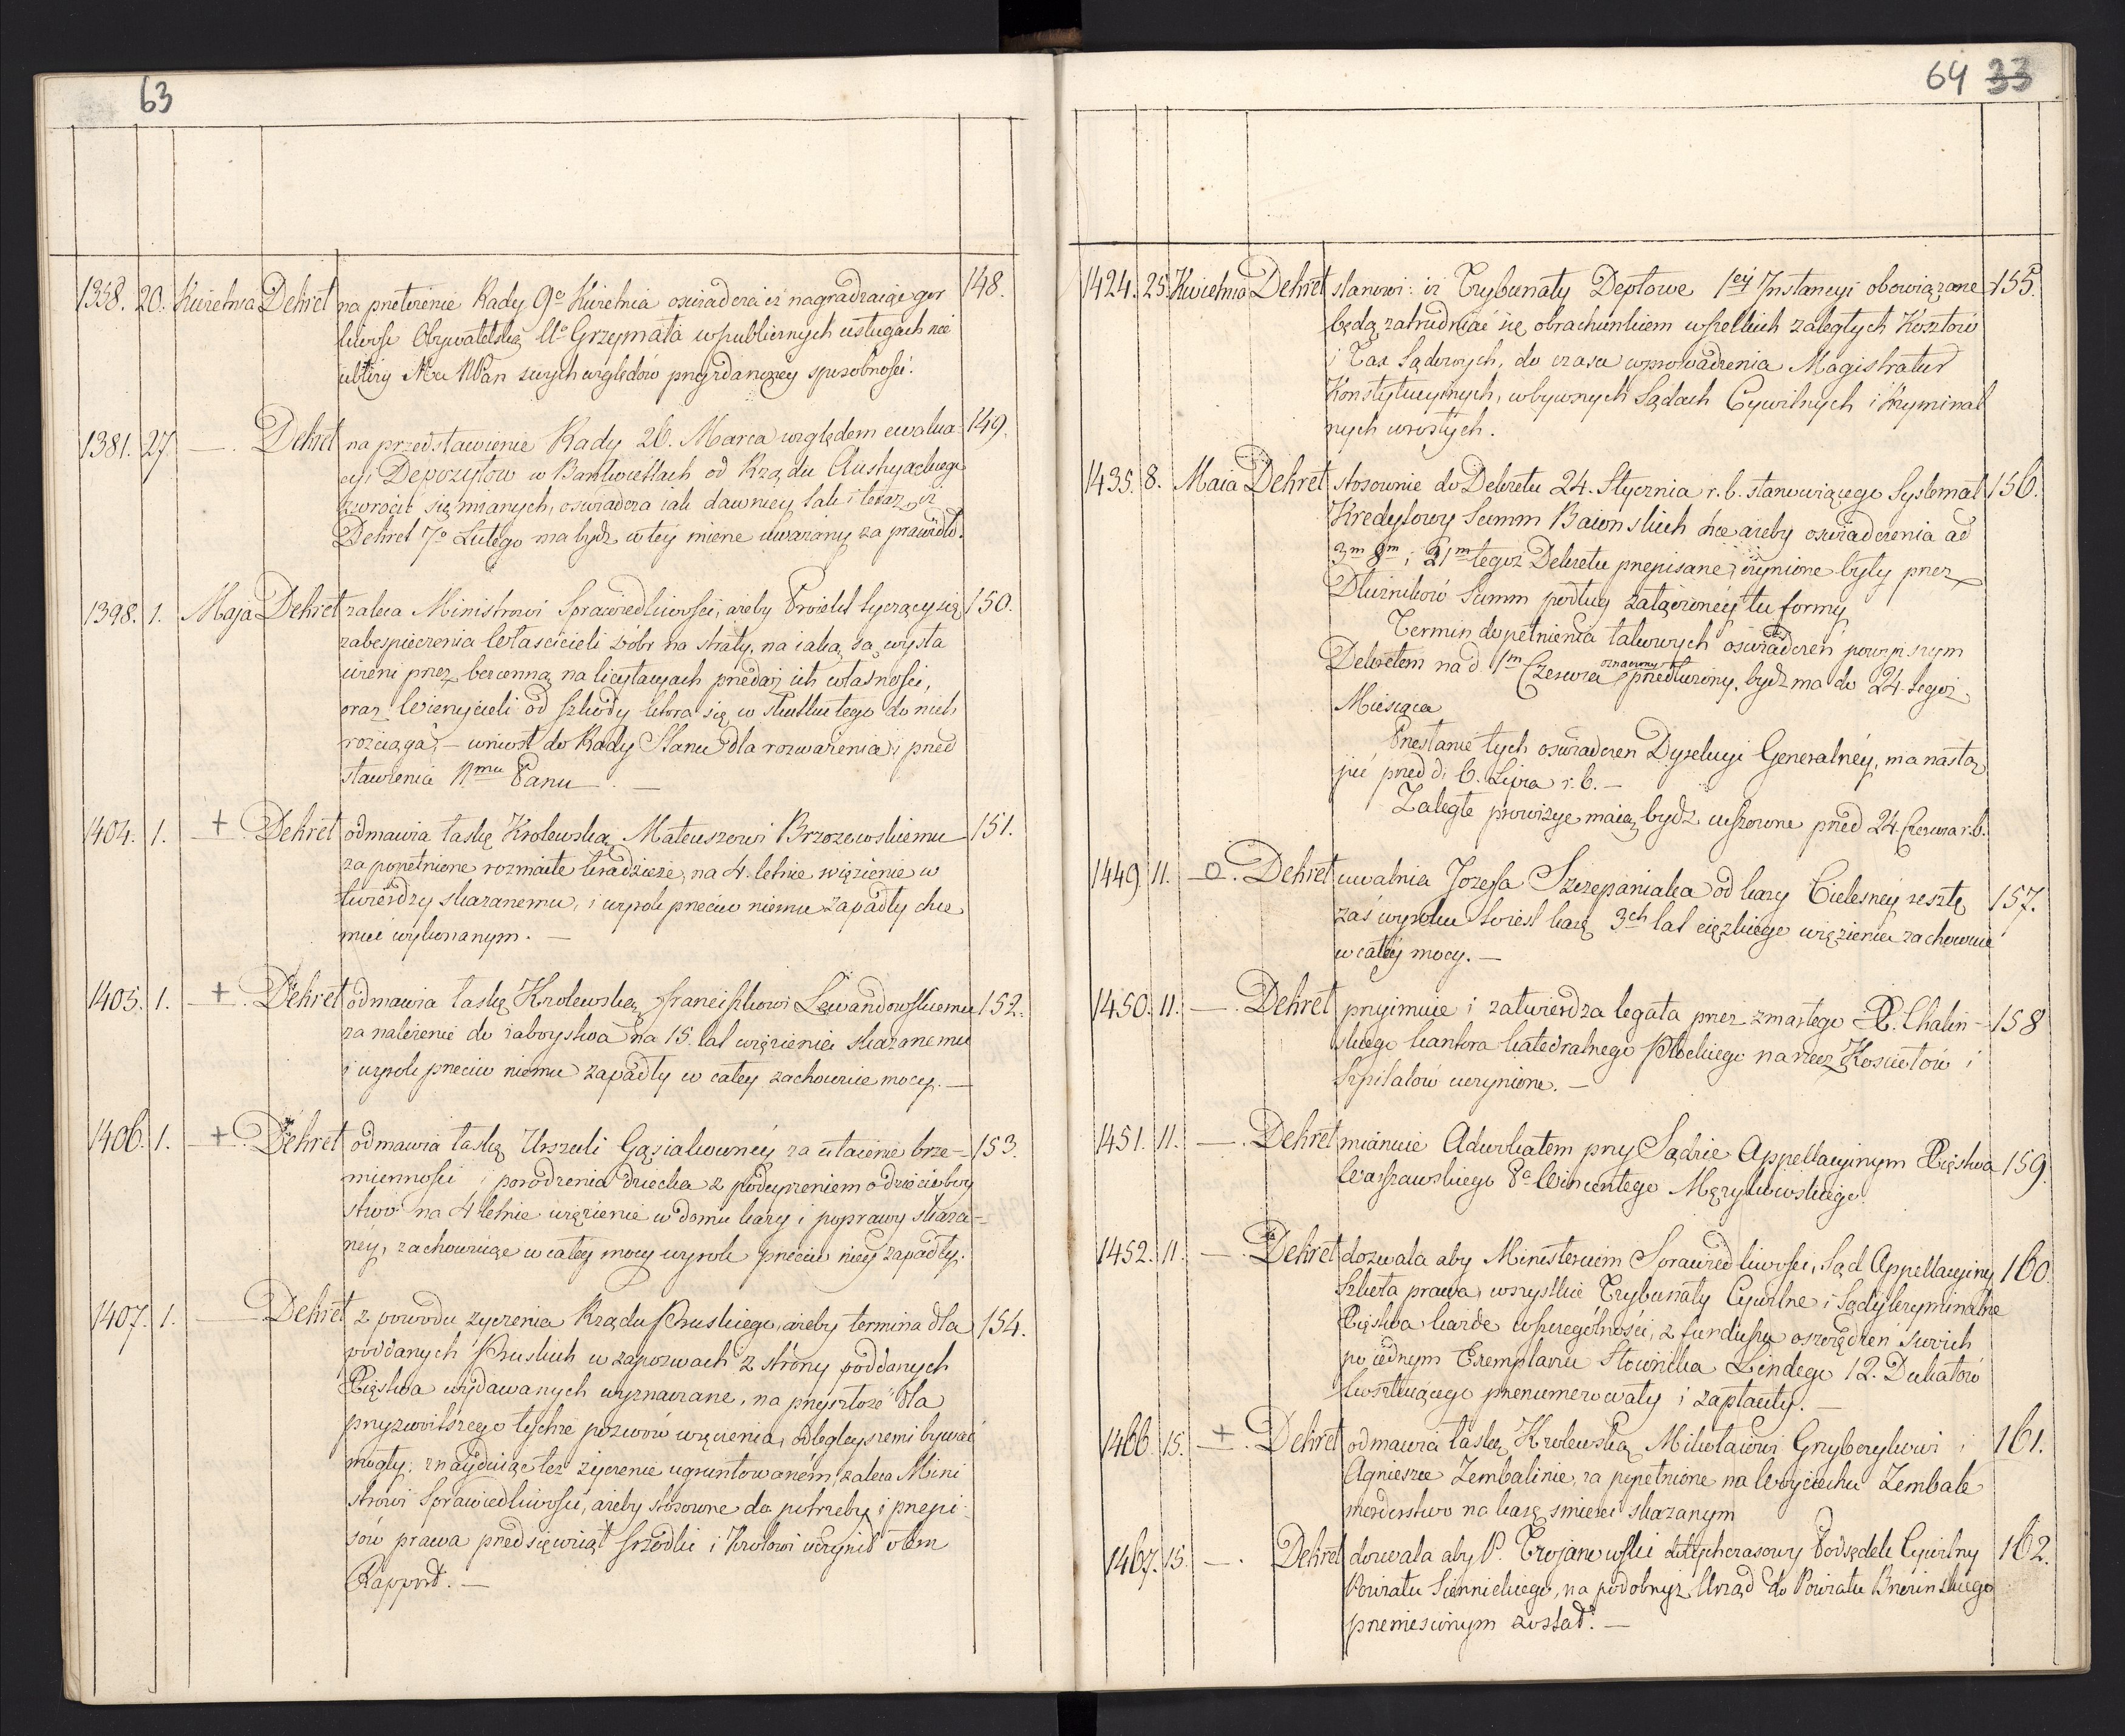 63
1358. 20. Kwietnia Dekret na przełożenie Rady 9o Kwietnia oswiadcza iż nagradzaiąc gor 148.
liwość Obywatelską Uo Grzymała w publicznych usługach nie
ubliży Nu NPan swych względów przydanyzey sposobności.
1381. 27. — Dekret na przedstawienie Rady 26. Marca względem ewalua- 149.
cyi Depozytów w Bankocetlach od Rządu Austryackiego
zwrócić się mianych, oswiadcza iak dawniey tak i teraz, iż
Dekret 7o Lutego ma bydz w tey mierze uważany za prawidło.
1398. 1. Maja Dekret zaleca Ministrowi Sprawiedliwości, ażeby Proiekt tyczący się 150.
zabespieczenia Właścicieli dóbr na straty, na iaką są wysta
wieni przez bezcenną na licytacyach przedaż ich własności,
oraz Wierzycieli od szkody która się w skutku tego do nich
rozciąga, — wniosł do Rady Stanu dla rozważenia i przed
stawienia N.mu Panu. —
1404. 1. — + Dekret odmawia łaskę Krolewską Mateuszowi Brzozewskiemu 151.
za popełnione rozmaite kradzieże, na 4. letnie więzienie w
twierdzy skazanemu, i wyrok przeciw niemu zapadły chce
mieć wykonanym. —
1405. 1. — + Dekret odmawia łaskę Krolewską Franciszkowi Lewandowskiemu 152.
za należenie do zaboystwa na 15. lat więzienia skazanemu
i wyrok przeciw niemu zapadły w całey zachowuie mocy. —
1406. 1. — + Dekret odmawia łaskę Urszuli Gąsiakowney za utaienie brze- 153.
mienności i porodzenia dziecka z podeyrzeniem o dzieciobóy
stwo na 4 letnie więzienie w domu kary i poprawy skaza-
ney, zachowuiąc w całey mocy wyrok przeciw niey zapadły.
1407. 1. — Dekret z powodu życzenia Rządu Pruskiego, ażeby termina dla 154.
poddanych Pruskich w zapozwach z strony poddanych
Xięstwa wydawanych wyznaczane, na przyszłość dla
przyzwoitszego tychże pozwów wręczenia, odległeyszemi bywać
mogły; znayduiąc te życzenie ugruntowaném, zaleca Mini
strowi Sprawiedliwości, ażeby stosowne do potrzeby i przepi-
sów prawa przedsięwziął srzodki i Krolowi uczynił o tém
Rapport. —
64 33
1424. 25. Kwietnia Dekret stanowi: iż Trybunały Deptowe 1ey Instancyi obowiązane 155.
będą zatrudniać się obrachunkiem wszelkich zaległych Kosztów
i Tax Sądowych, do czasu wprowadzenia Magistratur
Konstytucyinych, w bywszych Sądach Cywilnych i Kryminal
nych urosłych.
1435. 8. Maia Dekret stosownie do Dekretu 24. Stycznia r. b. stanowiącego Systemat 156.
Kredytowy Summ Baionskich chce ażeby oswiadczenia ad
3m 8m i 21m tegoż Dekretu przepisane, czynione były przez
Dłużników Summ podług załączoney tu formy
Termin dopełnienia takowych oswiadczeń powyższym
Dekretem na d. 1m Czerwca oznaczony przedłużony, bydz ma do 24. tegoż
Miesiąca
Przesłanie tych oswiadczen Dyrekcyi Generalnéy, ma nastą
pić przed d. 6. Lipca r. b. —
Zaległe prowizye maią bydz uiszczone przed 24. Czerwca r. b.
1449. 11. — o. Dekret uwalnia Jozefa Szczepaniaka od kary Cielesney resztę 157.
zaś wyroku to iest karę 3ch lat ciężkiego więzienia zachowuie
w całéy mocy. —
1450. 11. — Dekret przyimuie i zatwierdza legata przez zmarłego X. Chalin- 158
skiego kantora katedralnego Płockiego na rzecz Kościołów i
Szpitalów uczynione. —
1451. 11. — Dekret mianuie Adwokatem przy Sądzie Appellacyinym Xięstwa 159.
Warszawskiego Po Wincentego Mężykowskiego.
1452. 11. — Dekret dozwala aby Ministerium Sprawiedliwości, Sąd Appellacyiny 160.
Szkoła prawa, wszystkie Trybunały Cywilne i Sądy kryminalne
Xięstwa każde w szczególności, z funduszu oszczędzeń swoich
po iednym Exemplarzu Słownika Lindego 12. Dukatów
kosztuiącego prenumerowały i zapłaciły. —
1466. 15. — + Dekret odmawia łaskę Krolewską Mikołaiowi Grzyberykowi i 161.
Agnieszce Zembalinie, za popełnione na Woyciechu Zembale
morderstwo na karę smierci skazanym
1467. 15. — Dekret dozwala aby P. Trojanowski dotychczasowy Podsędek Cywilny 162.
Powiatu Siennickiego, na podobnyż Urząd do Powiatu Brzezinskiego
przeniesionym został. —